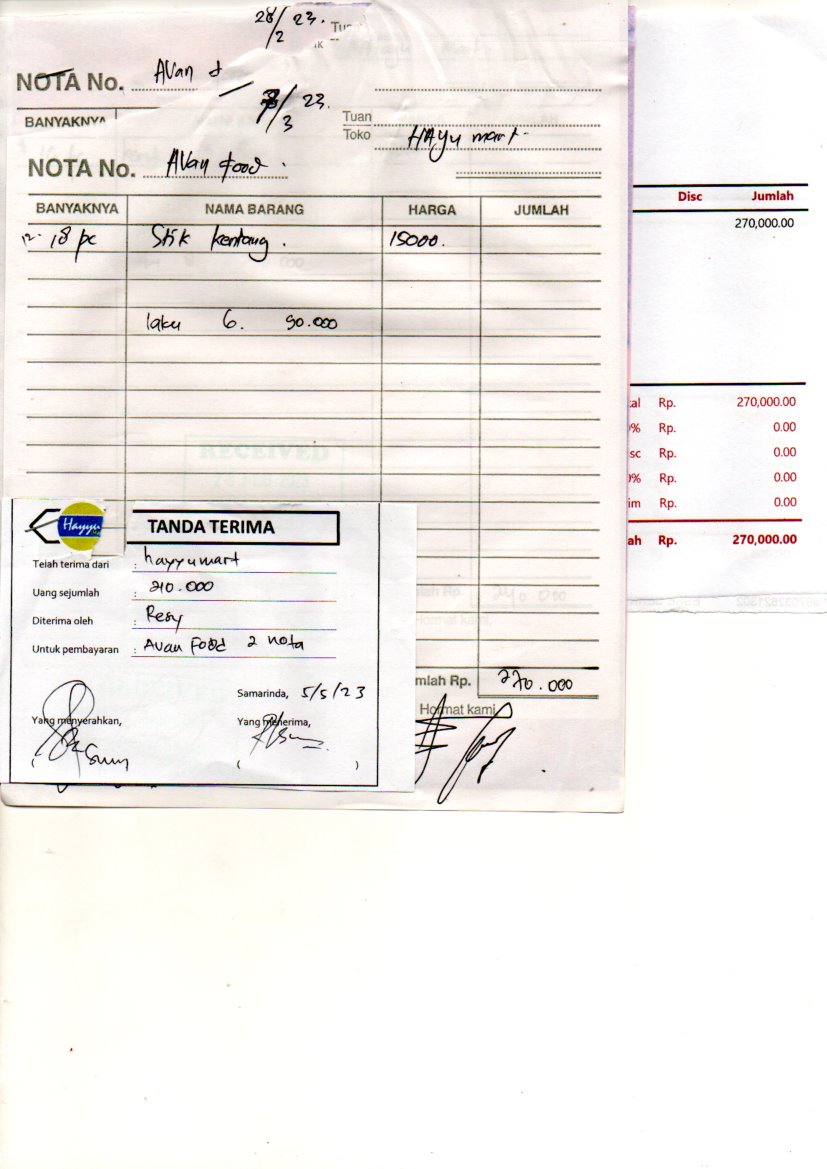 28/2 23.
NOTA No. Avan d
BANYAKNYA
7/3 23.
Tuan
Toko HAyu mart.
NOTA No. Avan food.
BANYAKNYA NAMA BARANG HARGA JUMLAH
12. 18 pc Stik kentang. 15000.
laku 6. 90.000
RECEIVED
Hayyu
TANDA TERIMA
Telah terima dari : hayyumart
Uang sejumlah : 210.000
Diterima oleh : Resy
Untuk pembayaran : Avan Food 2 nota
Samarinda, 5/5/23
Yang menyerahkan, Yang menerima,
( ( )
mlah Rp. 270.000
Hormat kami,
Disc Jumlah
270,000.00
al Rp. 270,000.00
% Rp. 0.00
sc Rp. 0.00
% Rp. 0.00
im Rp. 0.00
ah Rp. 270,000.00